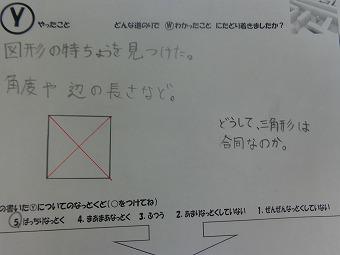 Y やったこと どんな道のりで Ⓦわかったこと にたどり着きましたか？
図形の特ちょうを見つけた。
角度や辺の長さなど。
どうして、三角形は
合同なのか。
の書いたⓎについてのなっとくど(○をつけてね)
5.ばっちりなっとく 4.まあまあなっとく 3.ふつう 2.あまりなっとくしていない 1.ぜんぜんなっとくしていない